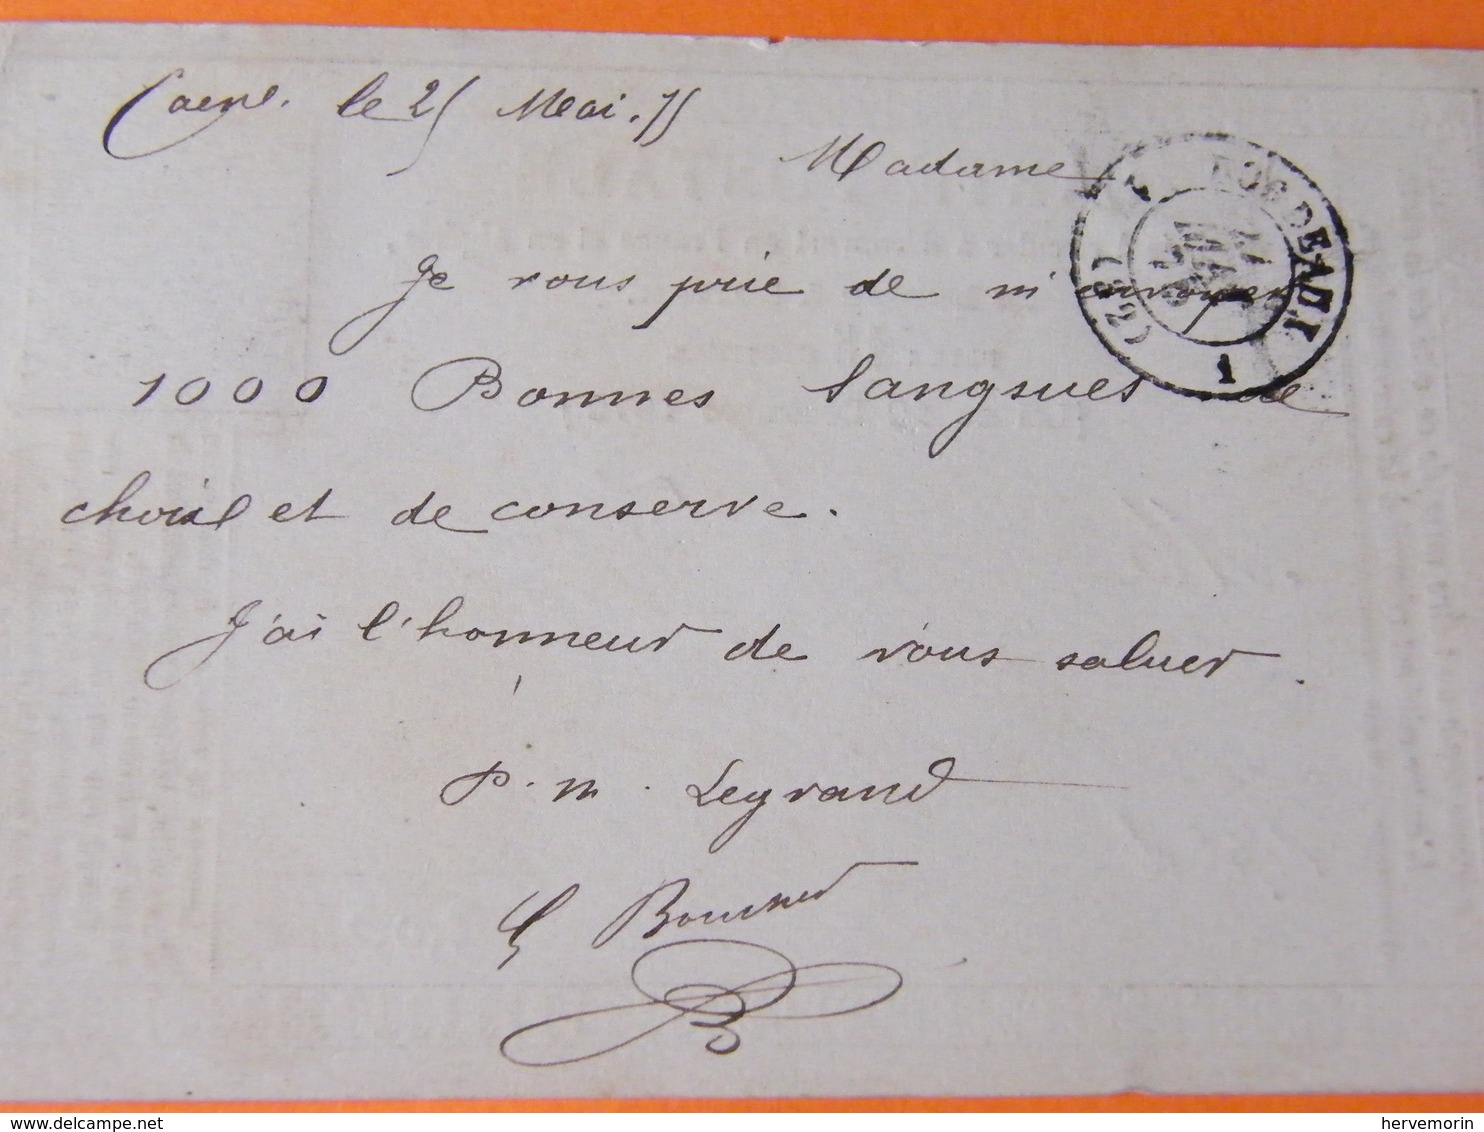 Caen. le 25 Mai. 75
Madame
Je vous prie de m'envoyer
1000 Bonnes Sangsues de
choix et de conserve.
J'ai l'honneur de vous saluer.
P. m. Legrand
BORDEAUX
(32)
1
hervemorin